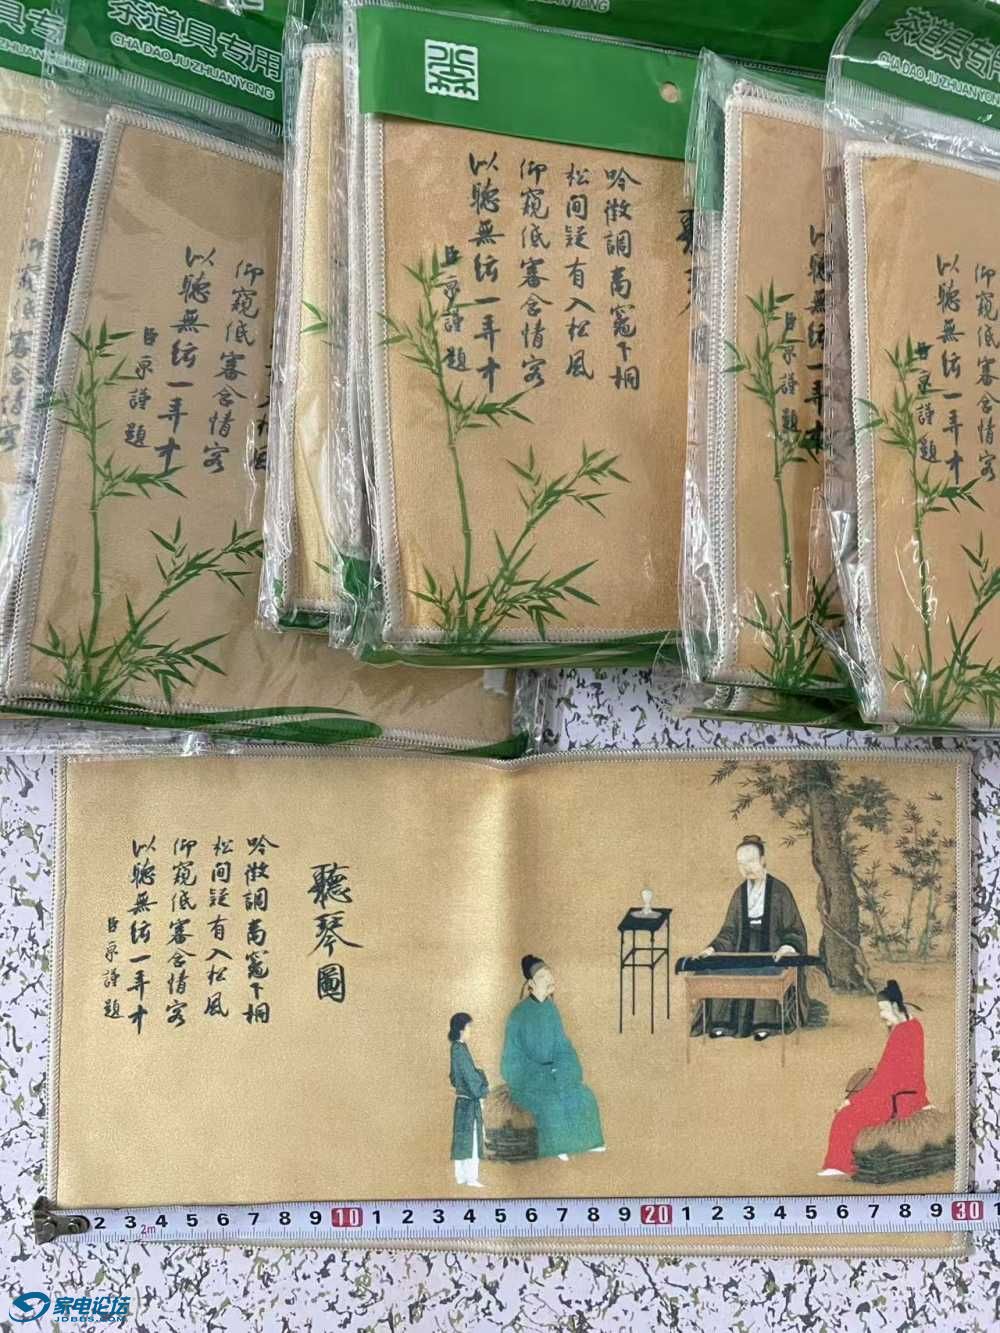 茶道具专用
CHA DAO JU ZHUAN YONG
茶道具专用
CHA DAO JU ZHUAN YONG
茶
仰窺低審含情客
以聽無絃一弄中
臣京謹題
吟徵調商竈下桐
松間疑有入松風
仰窺低審含情客
以聽無絃一弄中
臣京謹題
臣京謹題
仰窺低審含情客
以聽無絃一弄中
臣京謹題
聽琴圖
吟徵調商竈下桐
松間疑有入松風
仰窺低審含情客
以聽無絃一弄中
臣京謹題
2 3 4 5 6 7 8 9 10 1 2 3 4 5 6 7 8 9 20 1 2 3 4 5 6 7 8 9 30 1
2m
家电论坛
JDBBS.COM